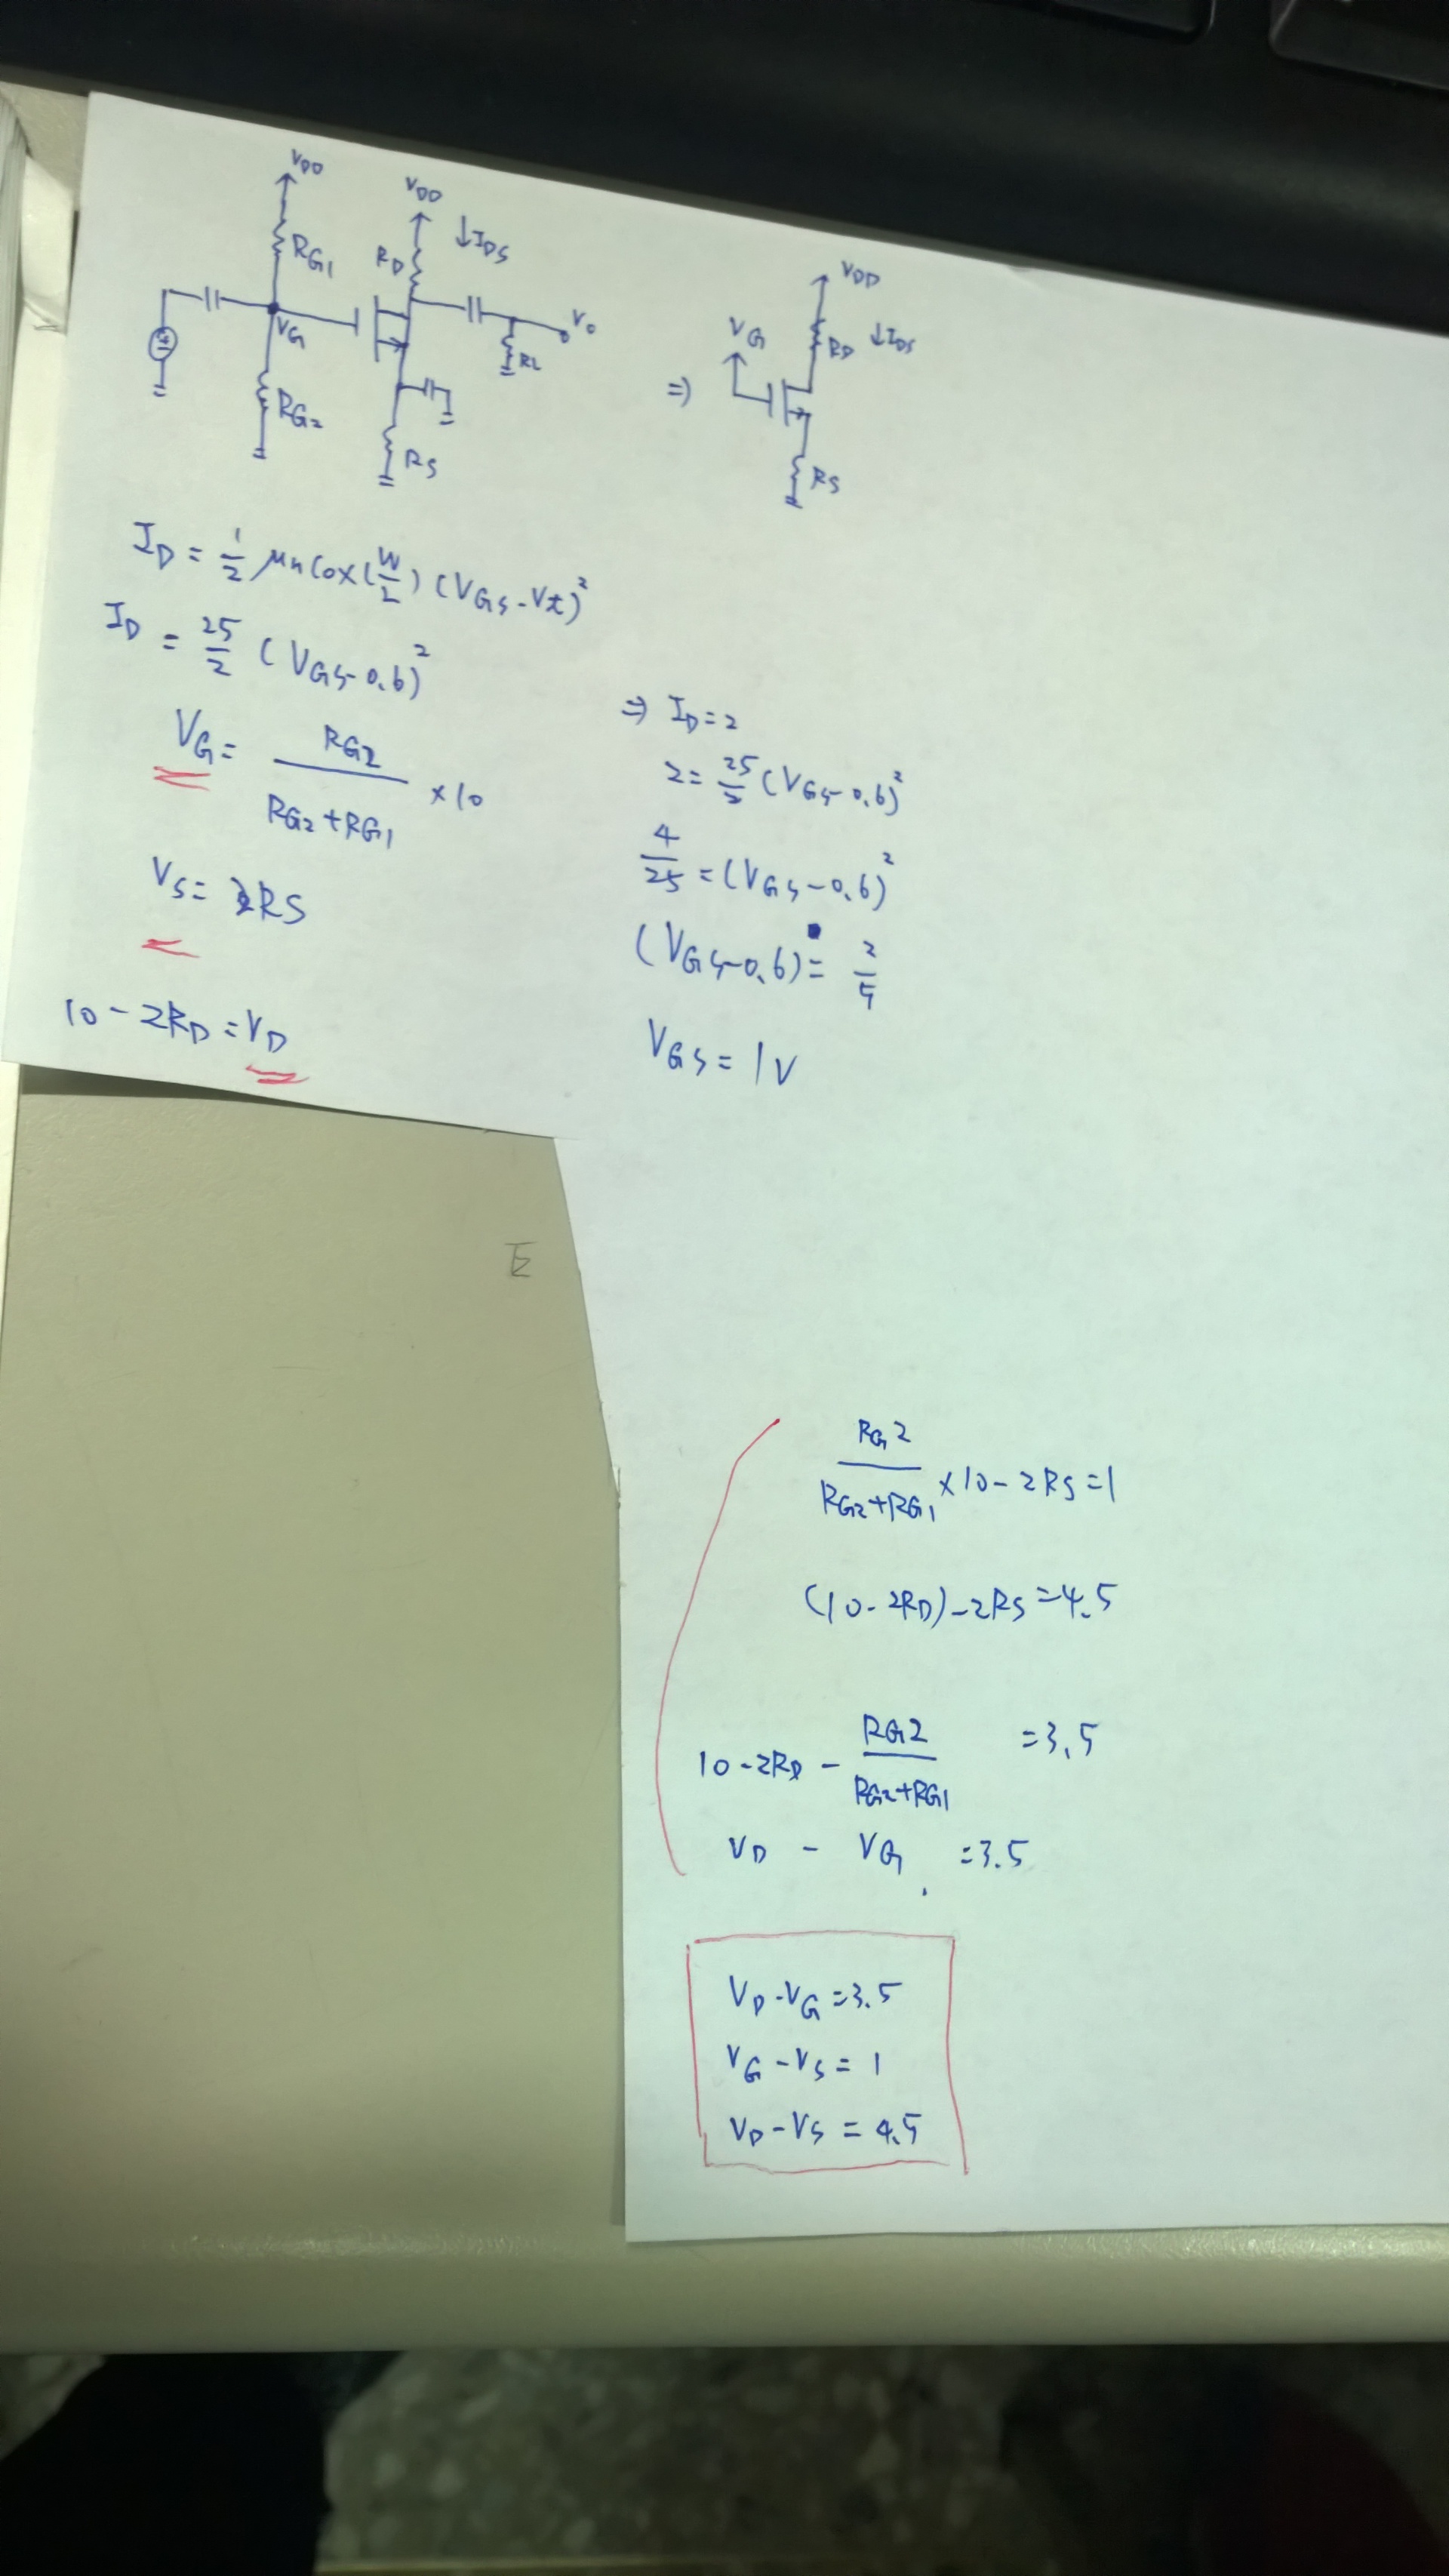 VDD
VDD
↓IDS
RG1
RD
VG
Vo
RL
RG2
RS
⇒
VDD
VG
RD
↓IDS
RS
ID = 1/2 μnCox(W/L)(VGS-Vt)²
ID = 25/2 (VGS-0.6)²
VG = RG2/(RG2+RG1) ×10
VS = 2RS
10-2RD = VD
⇒ ID=2
2 = 25/2 (VGS-0.6)²
4/25 = (VGS-0.6)²
(VGS-0.6) = 2/5
VGS = 1V
E
RG2/(RG2+RG1) ×10-2RS=1
(10-2RD)-2RS=4.5
10-2RD - RG2/(RG2+RG1) =3.5
VD - VG =3.5
VD-VG=3.5
VG-VS=1
VD-VS=4.5